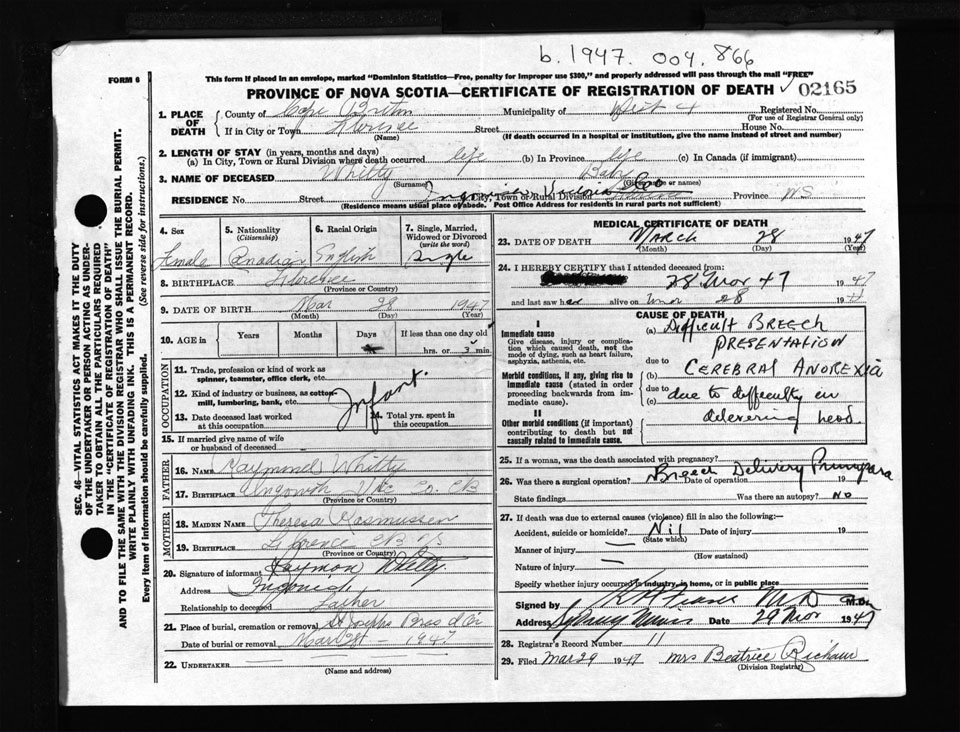 b. 1947. 004. 866
FORM 6
This form if placed in an envelope, marked "Dominion Statistics—Free, penalty for improper use $300," and properly addressed will pass through the mail "FREE"
PROVINCE OF NOVA SCOTIA—CERTIFICATE OF REGISTRATION OF DEATH 02165
1. PLACE OF DEATH County of Cape Breton Municipality of Dist 4 Registered No.
(For use of Registrar General only)
If in City or Town Florence Street House No.
(Name) (If death occurred in a hospital or institution, give the name instead of street and number)
2. LENGTH OF STAY (in years, months and days)
(a) In City, Town or Rural Division where death occurred life (b) In Province life (c) In Canada (if immigrant)
3. NAME OF DECEASED Whitty Baby
(Surname) (Given name or names)
RESIDENCE No. Street Ingonish Victoria Co City, Town or Rural Division Province N.S
(Residence means usual place of abode. Post Office Address for residents in rural parts not sufficient)
4. Sex Female
5. Nationality (Citizenship) Canadian
6. Racial Origin English
7. Single, Married, Widowed or Divorced (write the word) Single
8. BIRTHPLACE Florence
(Province or Country)
9. DATE OF BIRTH Mar 28 1947
(Month) (Day) (Year)
10. AGE in Years Months Days If less than one day
hrs. or 5 min.
OCCUPATION
11. Trade, profession or kind of work as spinner, teamster, office clerk, etc.
12. Kind of industry or business, as cotton-mill, lumbering, bank, etc. Infant.
13. Date deceased last worked at this occupation
14. Total yrs. spent in this occupation
15. If married give name of wife or husband of deceased
FATHER
16. NAME Raymond Whitty
17. BIRTHPLACE Ingonish Vic Co. C/B
(Province or Country)
MOTHER
18. MAIDEN NAME Theresa Rasmussen
19. BIRTHPLACE Florence C/B N/S
(Province or Country)
20. Signature of informant Raymon Whitty.
Address Ingonish
Relationship to deceased Father
21. Place of burial, cremation or removal St Josephs Bras d'Or
Date of burial or removal Mar 29th — 1947
22. UNDERTAKER
(Name and address)
MEDICAL CERTIFICATE OF DEATH
23. DATE OF DEATH MARCH 28 1947
(Month) (Day) (Year)
24. I HEREBY CERTIFY that I attended deceased from:
28 Mar 47 1947
and last saw her alive on Mar 28 19
CAUSE OF DEATH
I
Immediate cause
Give disease, injury or complication which caused death, not the mode of dying, such as heart failure, asphyxia, asthenia, etc.
(a) Difficult BREECH
PRESENTATION
due to
Morbid conditions, if any, giving rise to immediate cause (stated in order proceeding backwards from immediate cause).
(b) CEREBRAL ANOREXIA
due to
(c) due to difficulty in
delevering head.
II
Other morbid conditions (if important) contributing to death but not causally related to immediate cause.
25. If a woman, was the death associated with pregnancy?
26. Was there a surgical operation? Breech Delivery Primipara Date of operation 19
State findings Was there an autopsy? NO
27. If death was due to external causes (violence) fill in also the following:
Accident, suicide or homicide? Nil Date of injury 19
(State which)
Manner of injury —
(How sustained)
Nature of injury —
Specify whether injury occurred in industry, in home, or in public place
Signed by Fraser MD M.D.
Address Sydney Mines Date 29 Mar 1947
28. Registrar's Record Number 11
29. Filed Mar 29 1947 Mrs Beatrice
(Division Registrar)
SEC. 46—VITAL STATISTICS ACT MAKES IT THE DUTY
OF THE UNDERTAKER OR PERSON ACTING AS UNDER-
TAKER TO OBTAIN ALL THE PARTICULARS REQUIRED
IN THE "CERTIFICATE OF REGISTRATION OF DEATH"
AND TO FILE THE SAME WITH THE DIVISION REGISTRAR WHO SHALL ISSUE THE BURIAL PERMIT.
WRITE PLAINLY WITH UNFADING INK. THIS IS A PERMANENT RECORD.
Every item of information should be carefully supplied. (See reverse side for instructions.)